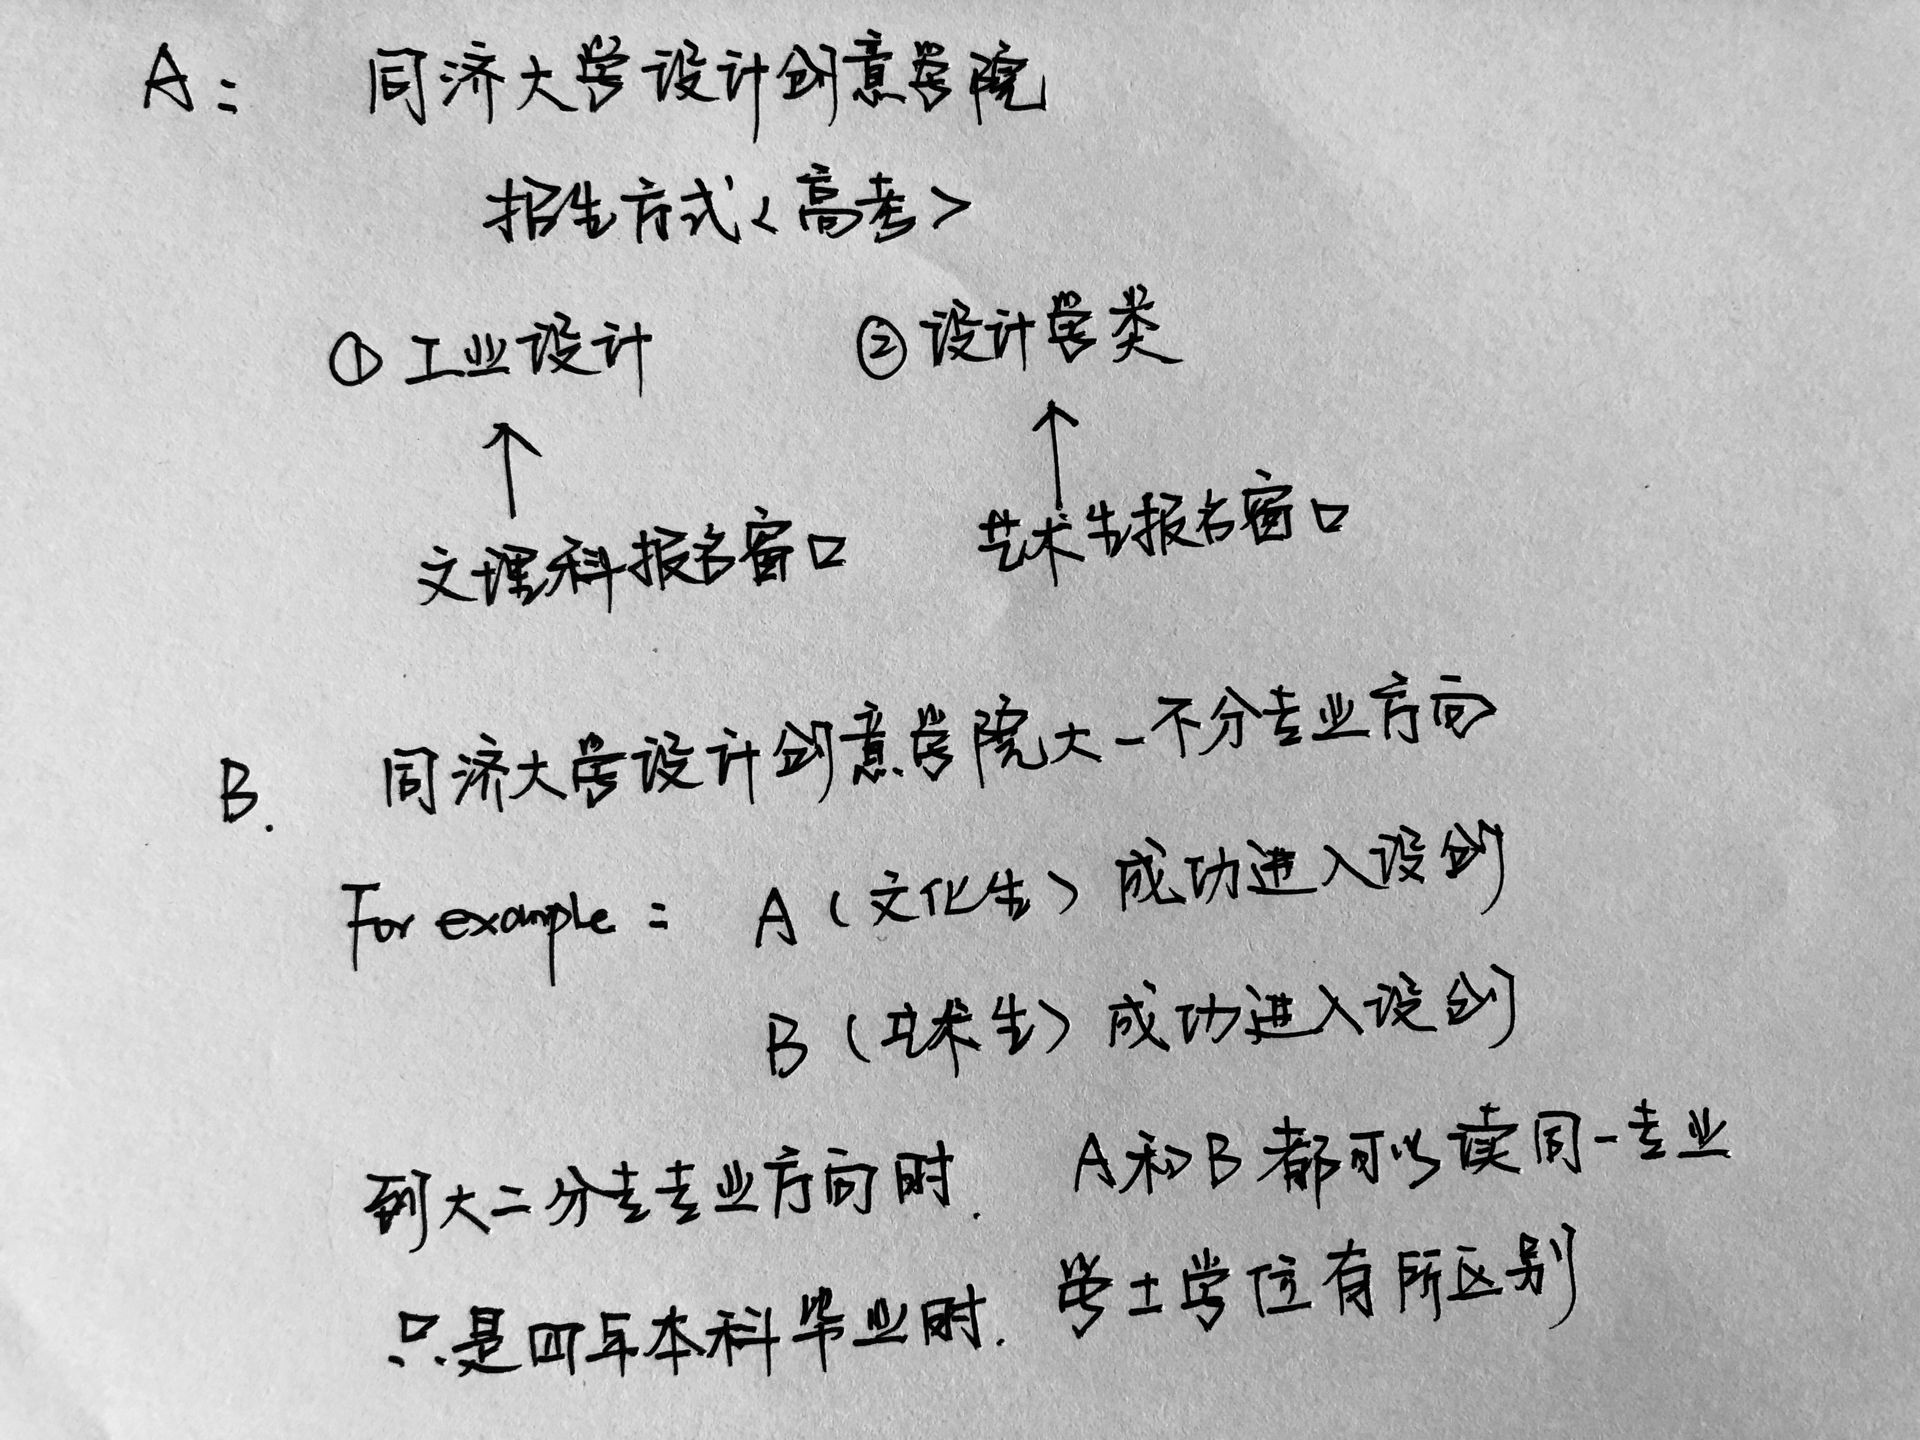 A: 同济大学设计创意学院
招生方式<高考>
① 工业设计 ② 设计学类
↑ ↑
文理科报名窗口 艺术生报名窗口
B. 同济大学设计创意学院大一不分专业方向
For example: A (文化生) 成功进入设创
B (艺术生) 成功进入设创
到大二分专专业方向时. A和B都可以读同一专业
只是四年本科毕业时. 学士学位有所区别